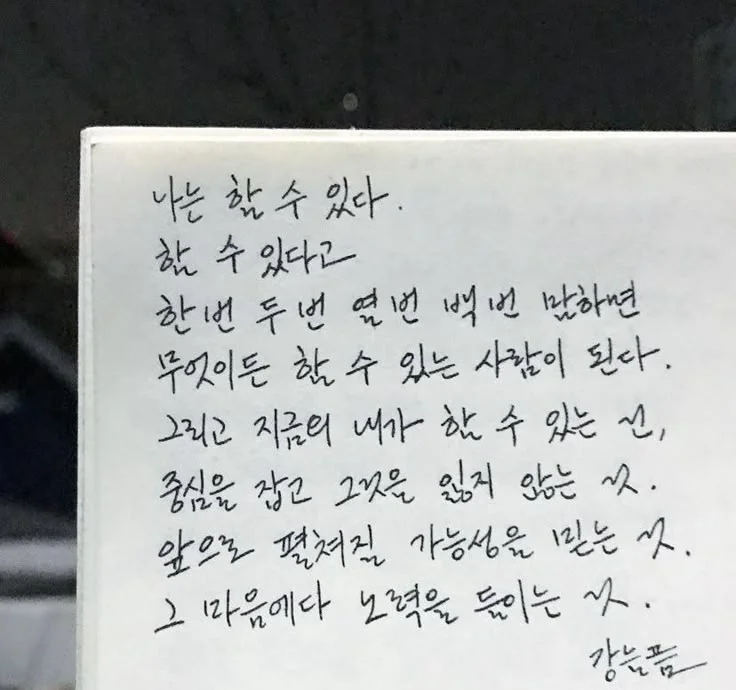 나는 할 수 있다.
할 수 있다고
한 번 두 번 열 번 백 번 말하면
무엇이든 할 수 있는 사람이 된다.
그리고 지금의 내가 할 수 있는 건,
중심을 잡고 그것을 잃지 않는 것.
앞으로 펼쳐질 가능성을 믿는 것.
그 마음에다 노력을 들이는 것.